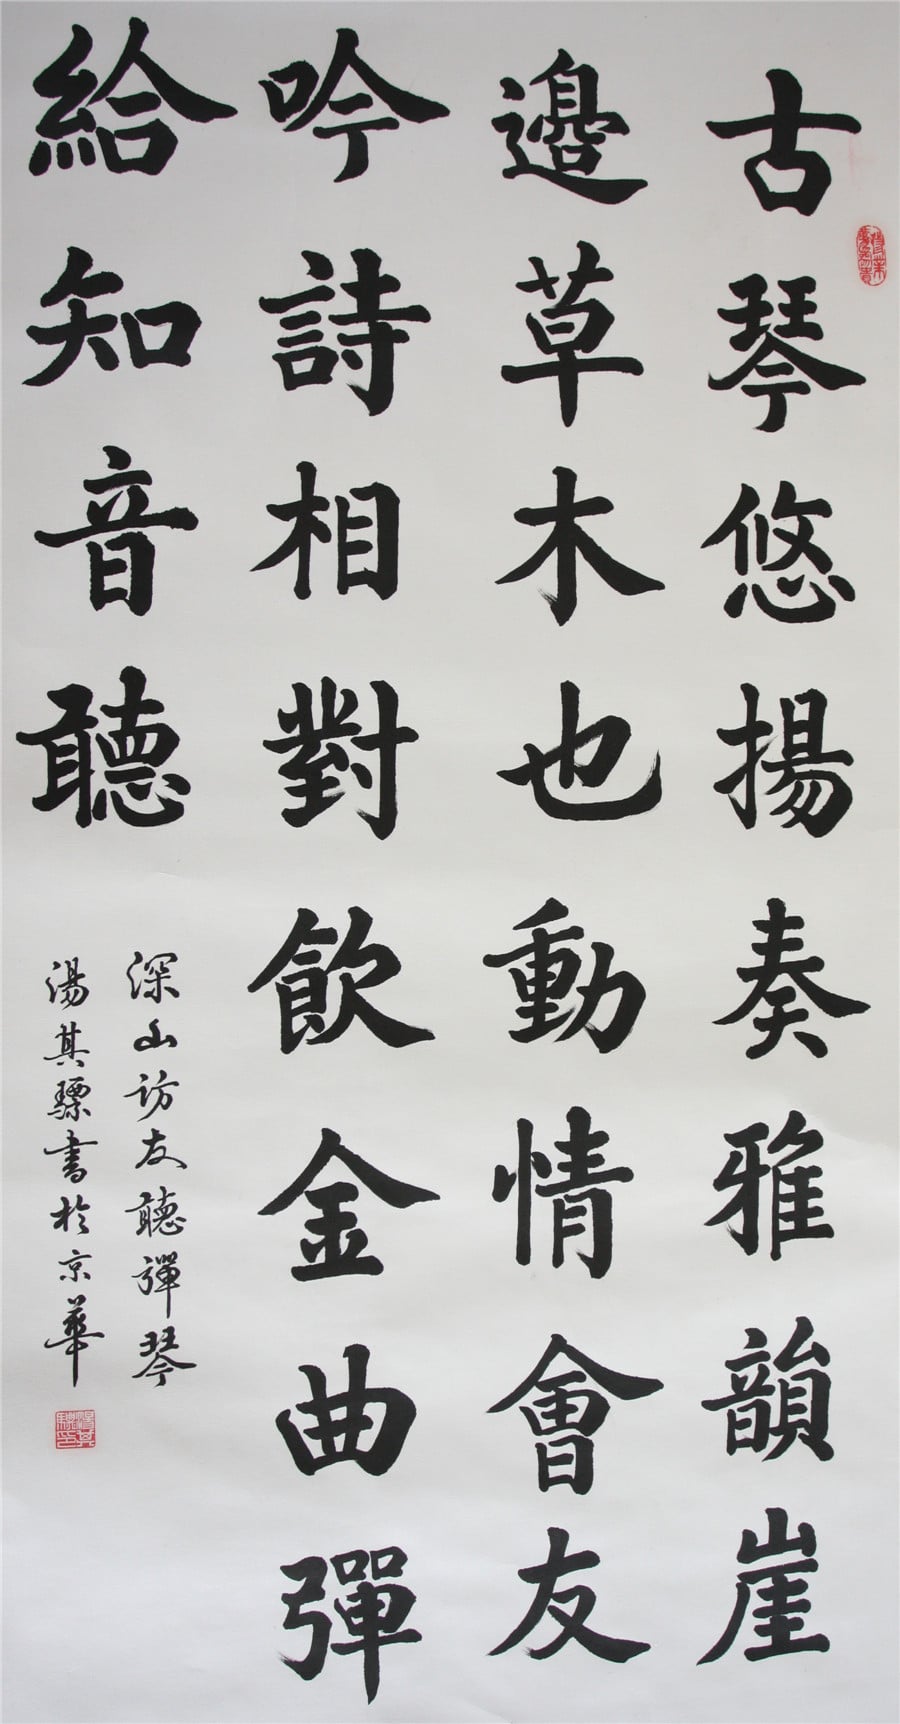 古琴悠揚奏雅韻崖
邊草木也動情會友
吟詩相對飲金曲彈
給知音聽
深山访友聽彈琴
湯其驃書於京華